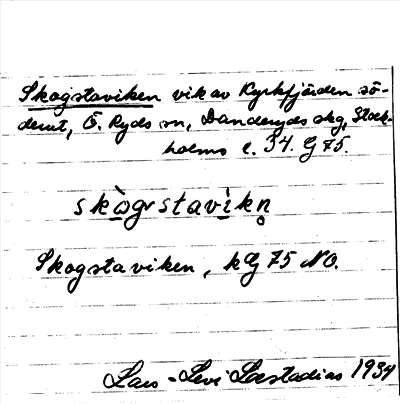 Skogstaviken vik av Kyrkfjärden sö-
derut, Ö. Ryds sn, Danderyds skg, Stock-
holms l. 34. G 75.
skògrstavìkn̥
Skogstaviken, kG 75 NO.
Lars-Levi Læstadius 1934